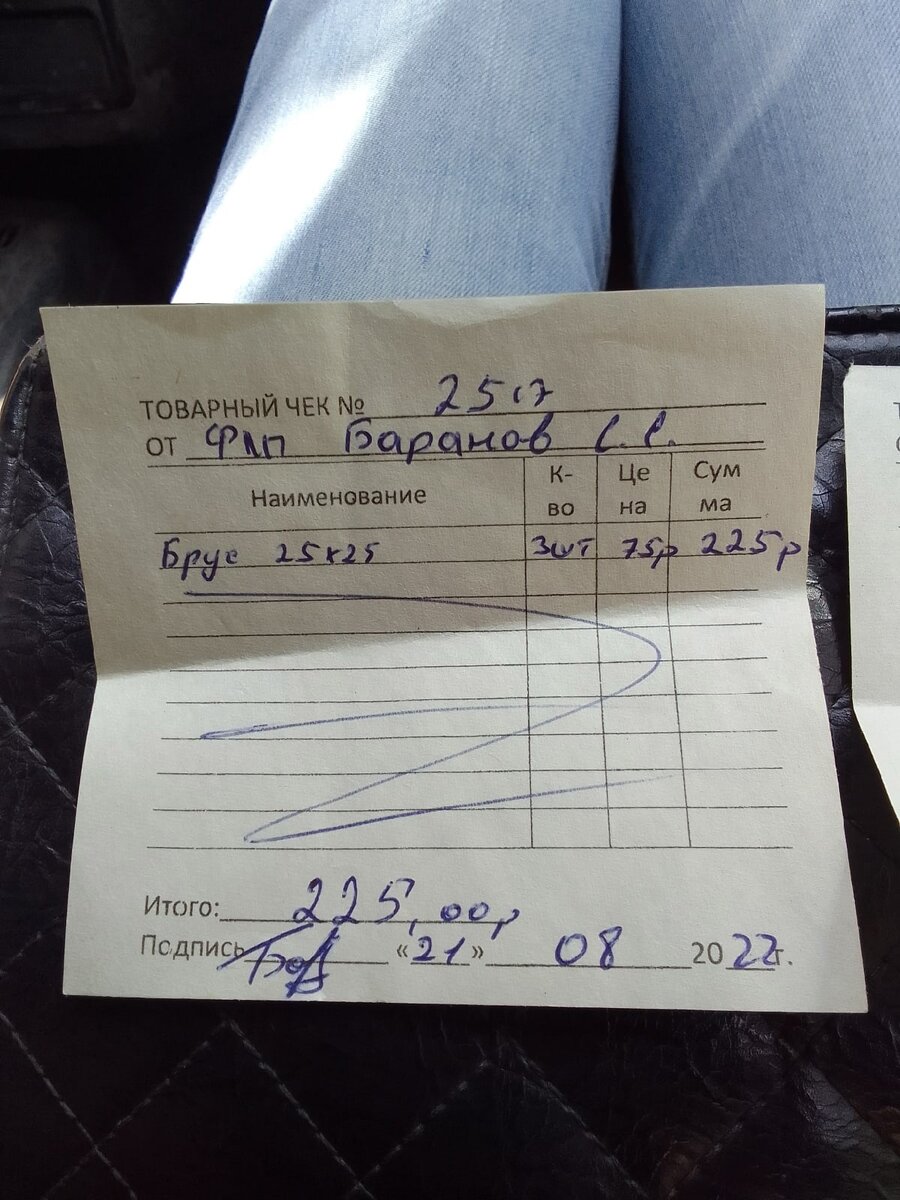 ТОВАРНЫЙ ЧЕК № 2517
ОТ ФЛП Баранов С.С.
Наименование К-во Цена Сумма
Брус 25х25 3шт 75р 225р
Итого: 225,00р
Подпись «21» 08 2022г.